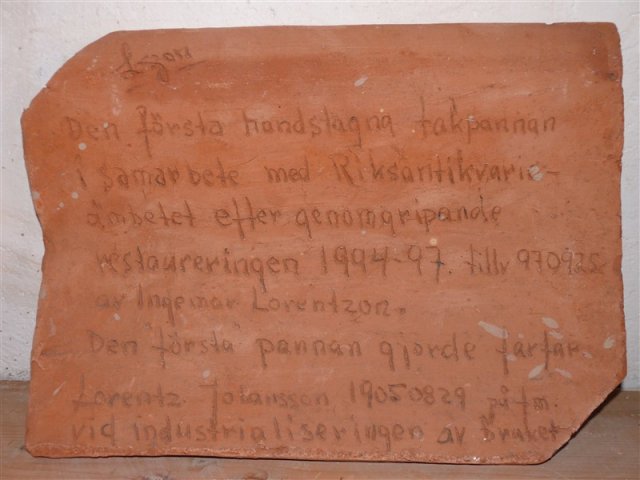 Den första handslagna takpannan
i samarbete med Riksantikvarie-
ämbetet efter genomgripande
restaureringen 1994-97. tillv 970925
av Ingemar Lorentzon.
Den "första" pannan gjorde farfar
Lorentz Johansson 19050829 på fm.
vid industrialiseringen av Bruket